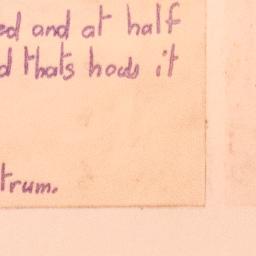 ed and at half
d thats hows it
trum.